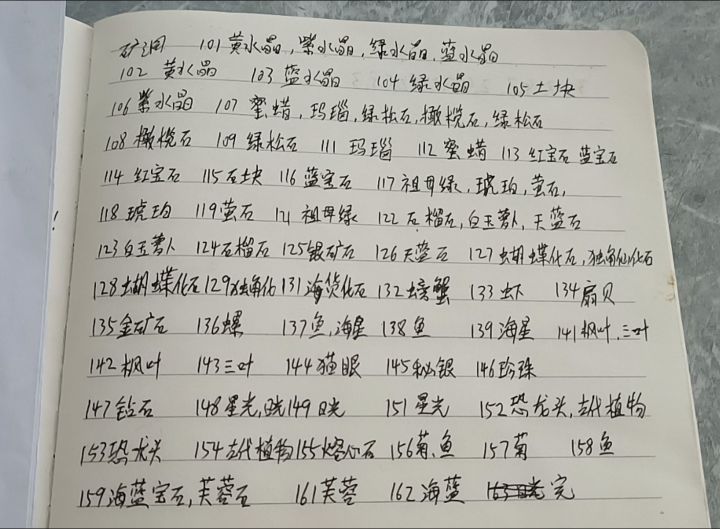 矿洞 101 黄水晶,紫水晶,绿水晶,蓝水晶
102 黄水晶 103 蓝水晶 104 绿水晶 105 土块
106 紫水晶 107 蜜蜡,玛瑙,绿松石,橄榄石,绿松石
108 橄榄石 109 绿松石 111 玛瑙 112 蜜蜡 113 红宝石 蓝宝石
114 红宝石 115 石块 116 蓝宝石 117 祖母绿,琥珀,萤石,
118 琥珀 119 萤石 121 祖母绿 122 石榴石,白玉萝卜,天蓝石
123 白玉萝卜 124 石榴石 125 银矿石 126 天蓝石 127 蝴蝶化石,独角仙化石
128 蝴蝶化石 129 独角化 131 海货化石 132 螃蟹 133 虾 134 扇贝
135 金矿石 136 螺 137 鱼,海星 138 鱼 139 海星 141 枫叶,三叶
142 枫叶 143 三叶 144 猫眼 145 秘银 146 珍珠
147 钻石 148 星光,日光 149 日光 151 星光 152 恐龙头,古代植物
153 恐龙头 154 古代植物 155 熔心石 156 菊,鱼 157 菊 158 鱼
159 海蓝宝石,芙蓉石 161 芙蓉 162 海蓝 完